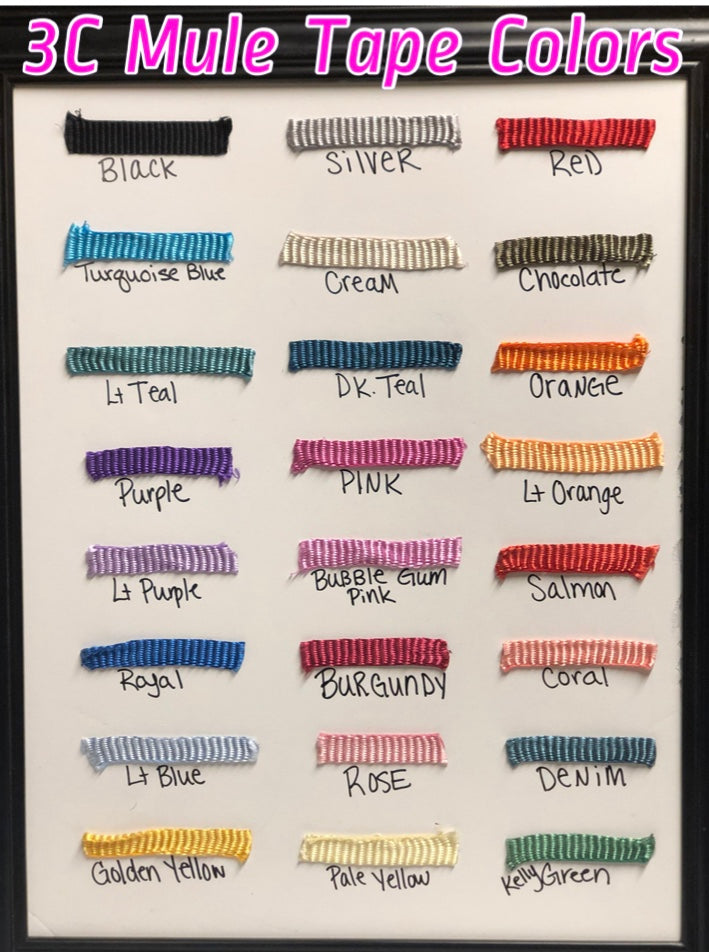 3C Mule Tape Colors
Black
Silver
Red
Turquoise Blue
Cream
Chocolate
Lt Teal
DK. Teal
Orange
Purple
PINK
Lt Orange
Lt Purple
Bubble Gum
Pink
Salmon
Royal
BURGUNDY
Coral
Lt Blue
ROSE
DENiM
Golden Yellow
Pale Yellow
Kelly Green